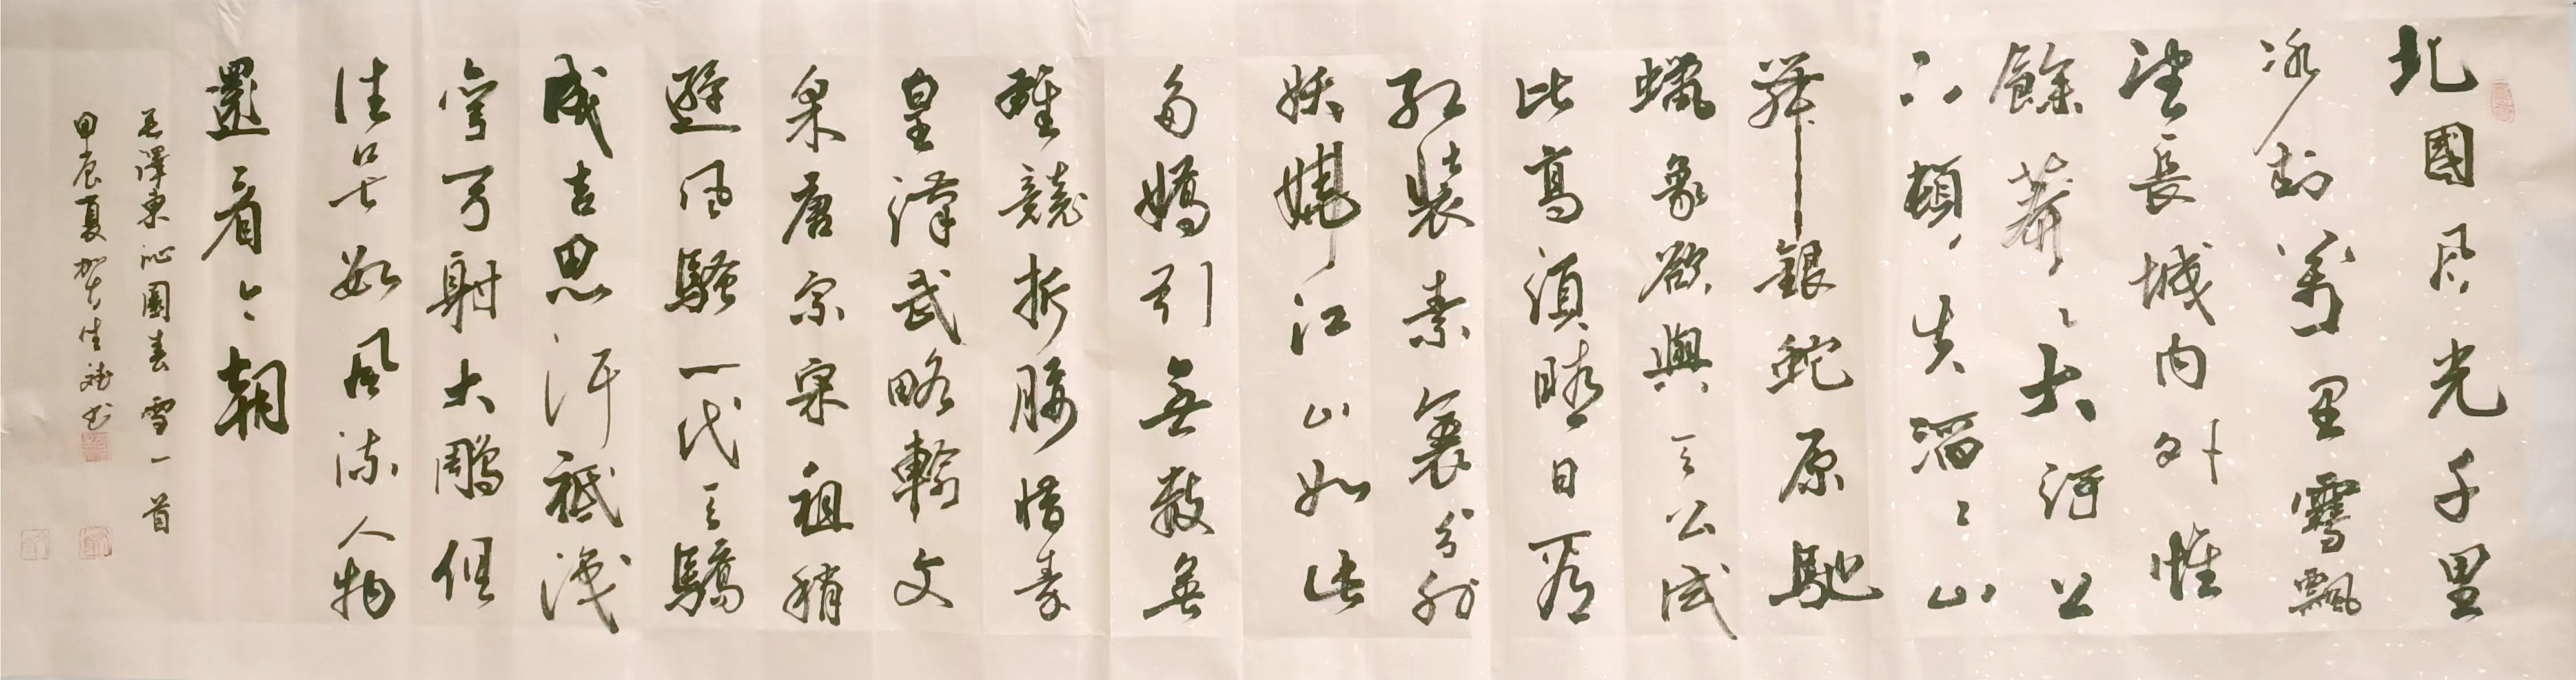 北國风光千里
冰封萬里雪飄
望長城内外惟
餘莽〻大河上
下頓失滔〻山
舞銀蛇原馳
蠟象欲與天公试
比高須晴日看
紅裝素裹分外
妖嬈江山如此
多嬌引無數英
雄競折腰惜秦
皇漢武略輸文
采唐宗宋祖稍
遜风騷一代天驕
成吉思汗祇識
彎弓射大鵰俱
往矣數風流人物
還看今朝
毛澤東沁園春雪一首
甲辰夏賀生斌书